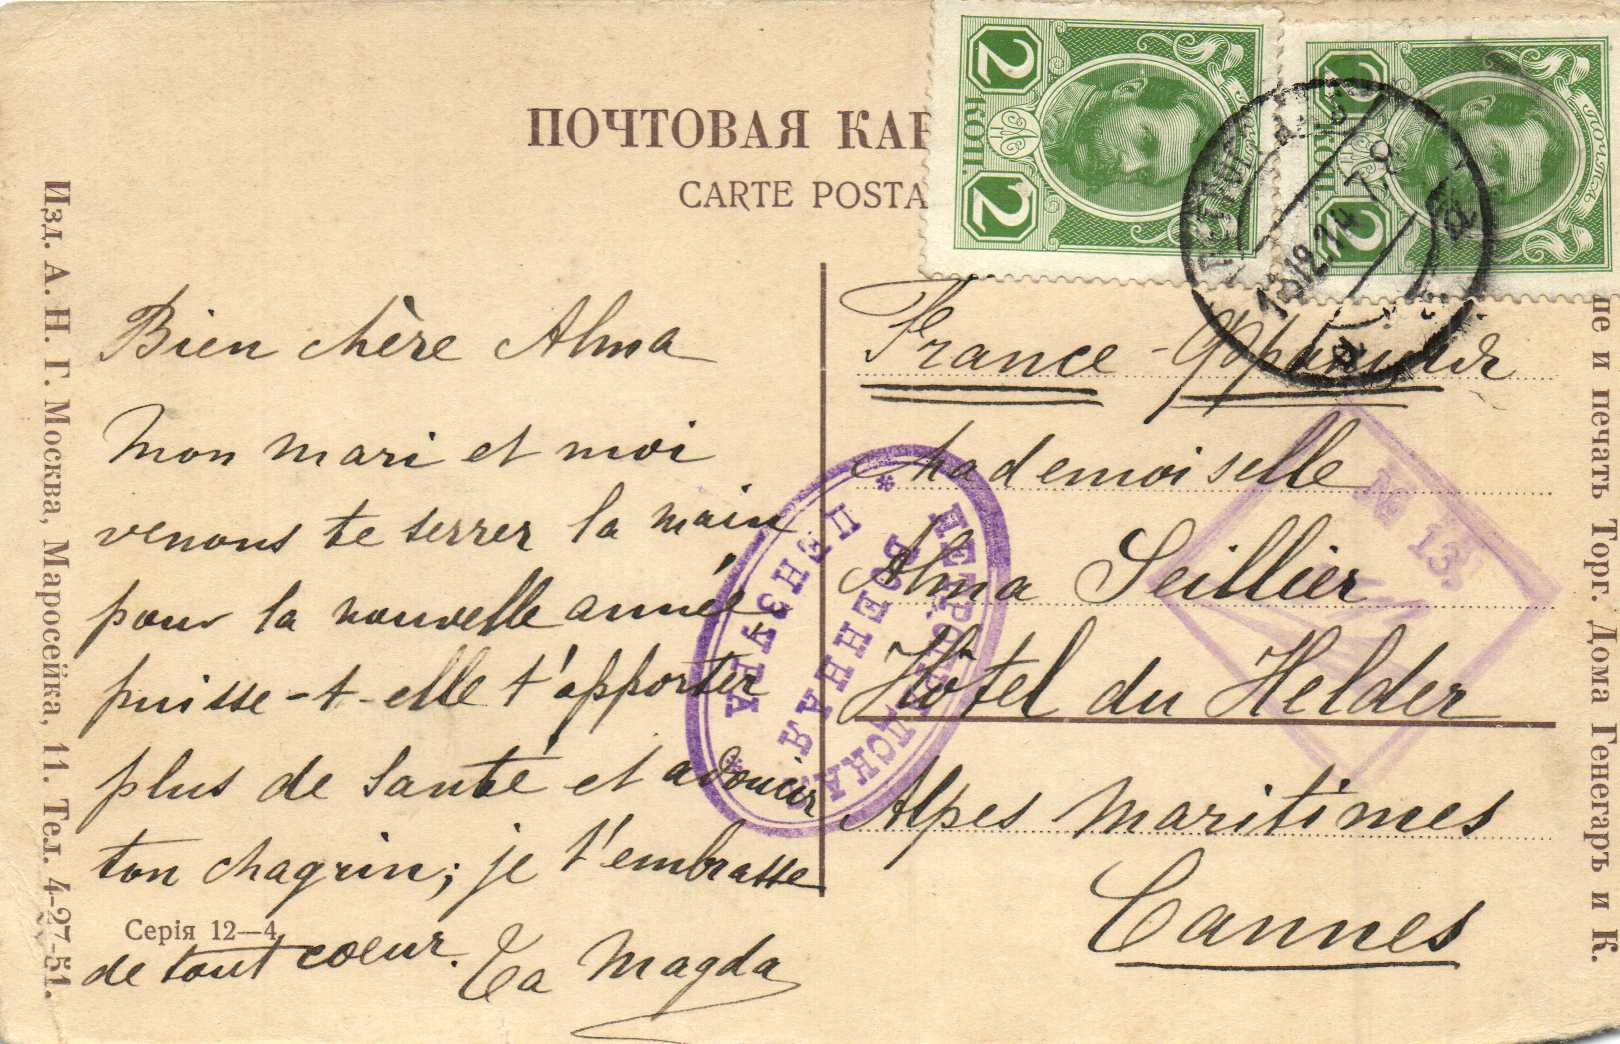 ПОЧТОВАЯ КАР
CARTE POSTA
2 КОП. 2
2 КОП. 2
18 12 14 7. 8
Bien chère Alma
Mon mari et moi
venons te serrer la main
pour la nouvelle année
puisse-t-elle t'apporter
plus de santé et adoucir
ton chagrin; je t'embrasse
de tout coeur. Ta Magda
France - Франція
Mademoiselle
Alma Seillier
Hôtel du Helder
Alpes Maritimes
Cannes
ПЕТРОГРАДСКАЯ
ВОЕННАЯ
ЦЕНЗУРА
№ 13.
Серія 12—4
Изд. А. Н. Г. Москва, Маросейка, 11. Тел. 4-27-51.
ие и печать Торг. Дома Генегаръ и К.